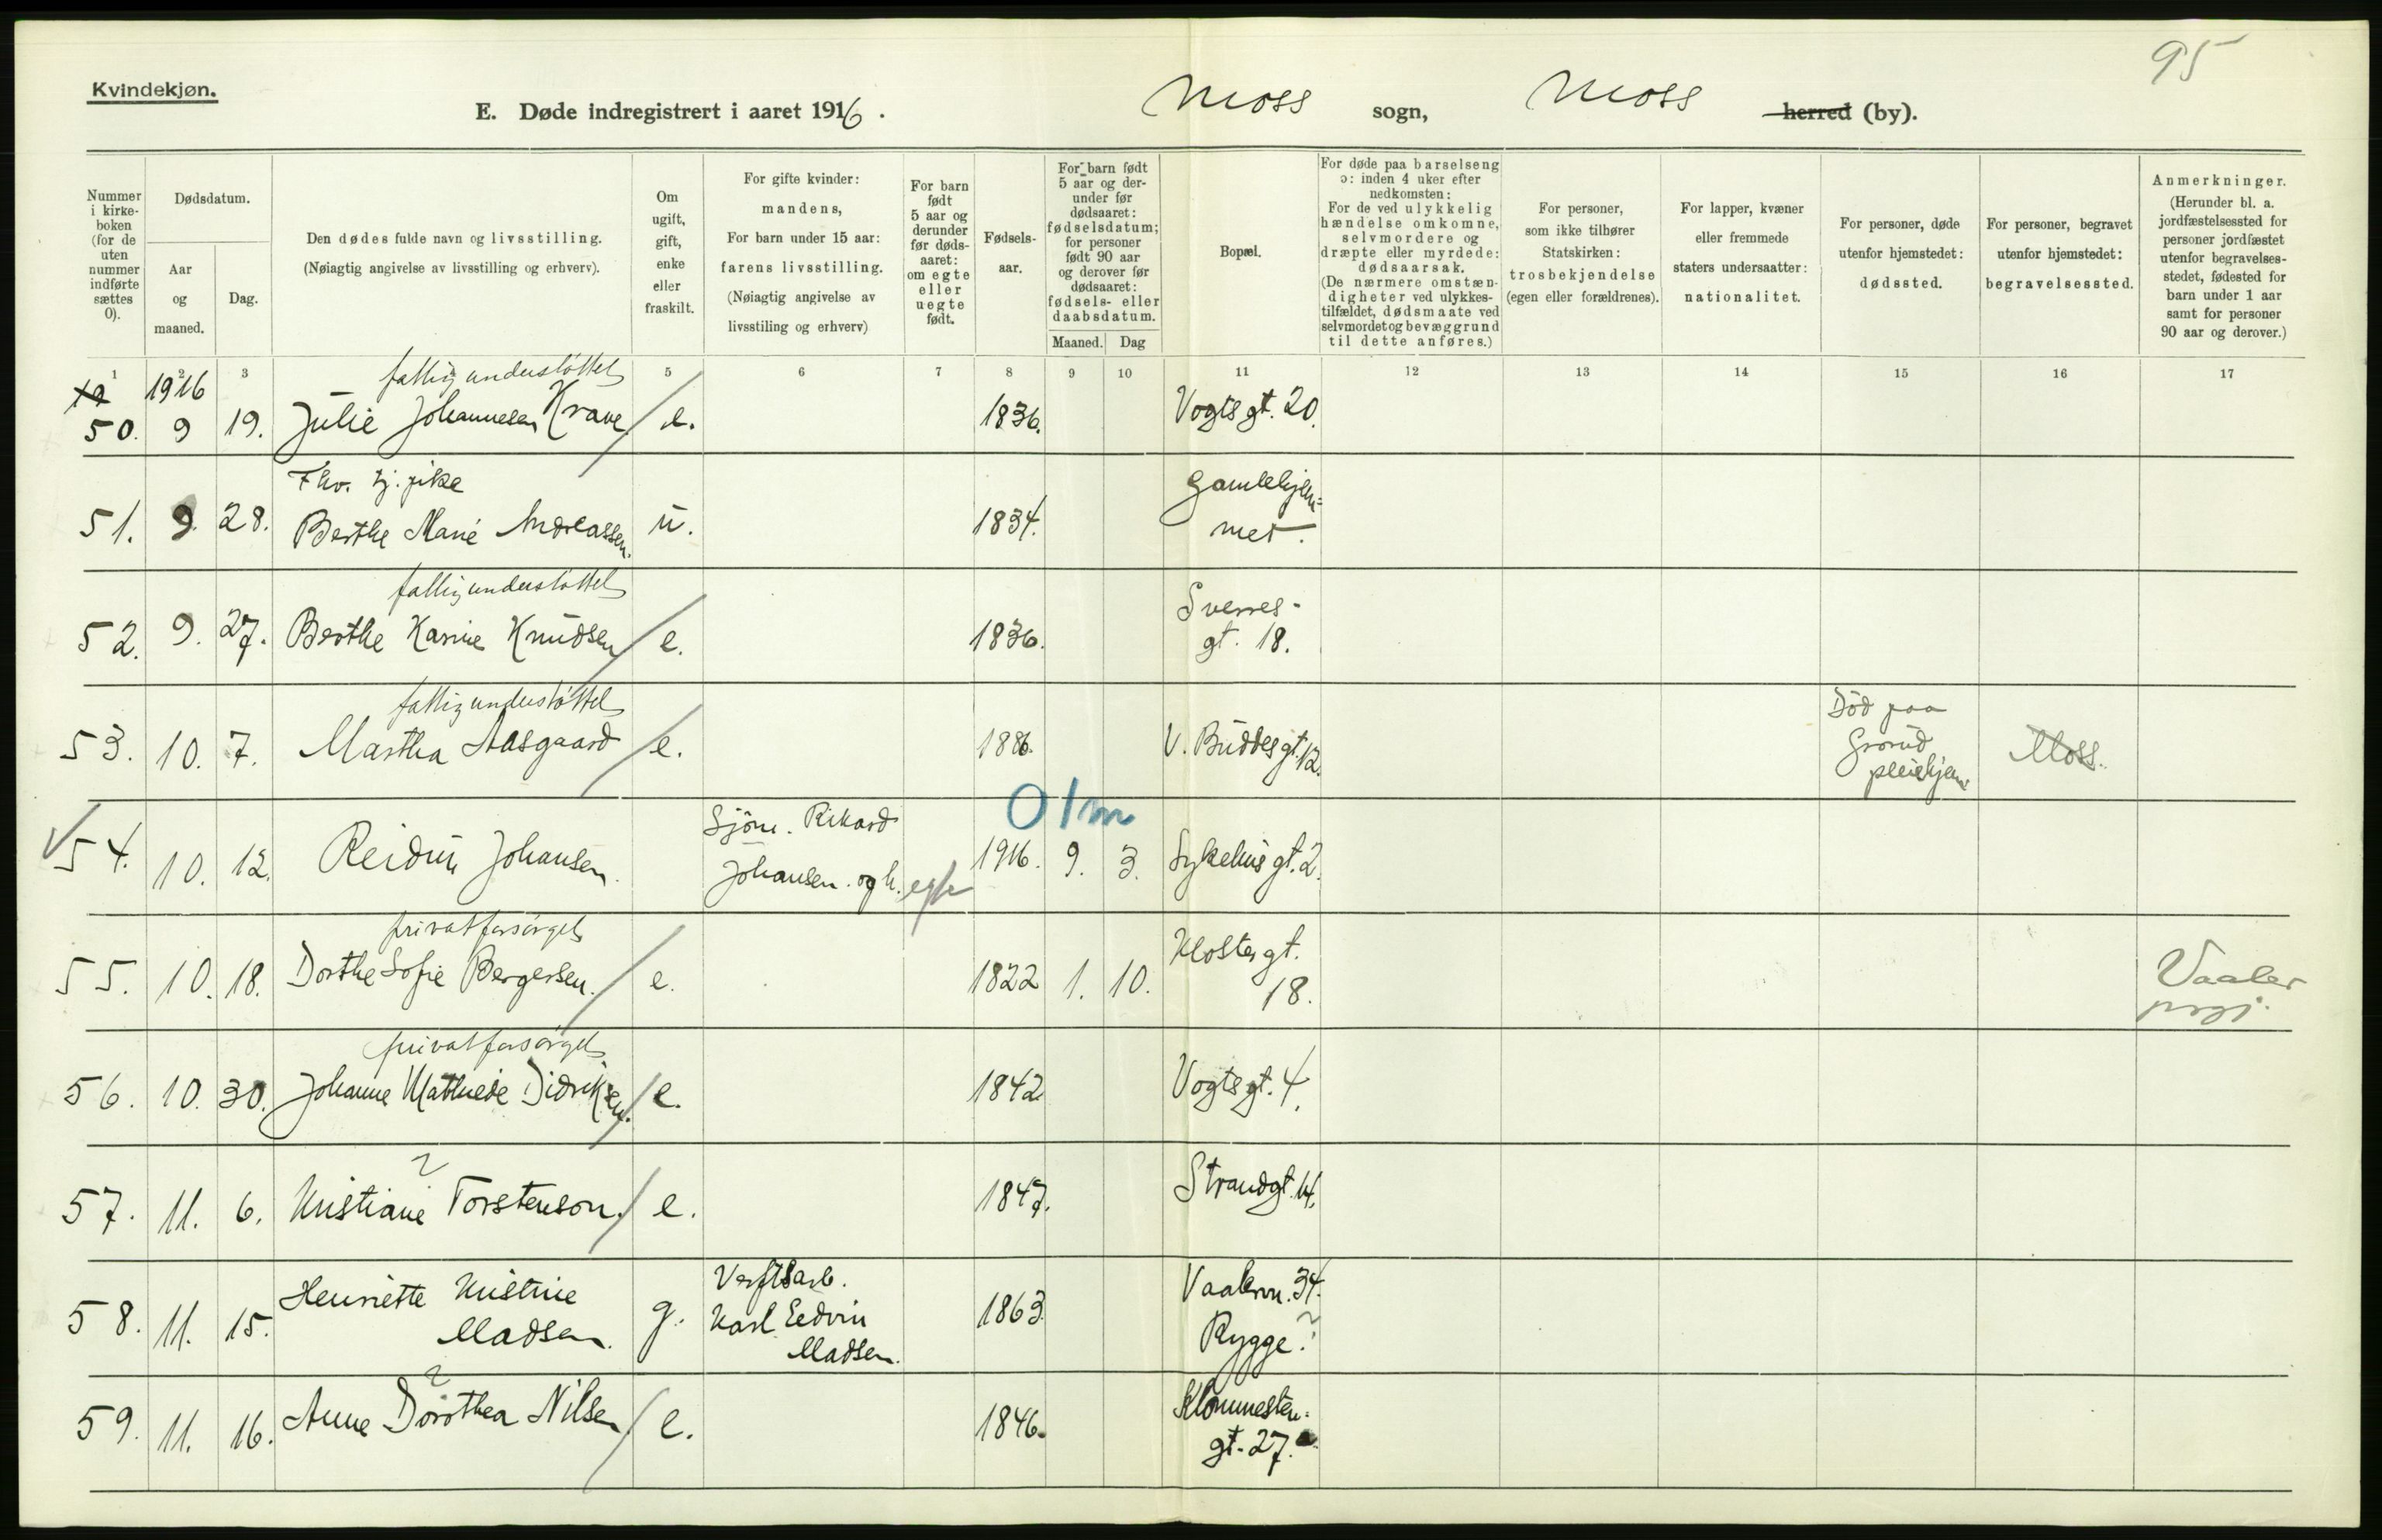 95
Kvindekjøn.
E. Døde indregistrert i aaret 1916.
Moss sogn, Moss herred (by).
Nummer i kirkeboken (for de uten nummer indførte sættes 0).
Dødsdatum.
Aar og maaned.
Dag.
Den dødes fulde navn og livsstilling.
(Nøiagtig angivelse av livsstilling og erhverv).
Om ugift, gift, enke eller fraskilt.
For gifte kvinder: mandens,
For barn under 15 aar: farens livsstilling.
(Nøiagtig angivelse av livsstiling og erhverv)
For barn født 5 aar og derunder før dødsaaret: om egte eller uegte født.
Fødselsaar.
For barn født 5 aar og derunder før dødsaaret: fødselsdatum; for personer født 90 aar og derover før dødsaaret: fødsels- eller daabsdatum.
Maaned.
Dag
Bopæl.
For døde paa barselseng ɔ: inden 4 uker efter nedkomsten:
For de ved ulykkelig hændelse omkomne, selvmordere og dræpte eller myrdede: dødsaarsak.
(De nærmere omstændigheter ved ulykkestilfældet, dødsmaate ved selvmordet og bevæggrund til dette anføres.)
For personer, som ikke tilhører Statskirken: trosbekjendelse (egen eller forældrenes).
For lapper, kvæner eller fremmede staters undersaatter: nationalitet.
For personer, døde utenfor hjemstedet: dødssted.
For personer, begravet utenfor hjemstedet: begravelsessted.
Anmerkninger.
(Herunder bl. a. jordfæstelsessted for personer jordfæstet utenfor begravelsesstedet, fødested for barn under 1 aar samt for personer 90 aar og derover.)
1 2 3 5 6 7 8 9 10 11 12 13 14 15 16 17
1916
fattigunderstøttet
50. 9 19. Julie Johannesen Krave e. 1836. Vogtsgt. 20.
Fhv. tj. pike
51. 9. 28. Berthe Marie Andreassen. u. 1834. Gamlehjem=
met.
fattigunderstøttet
52. 9. 27. Berthe Karine Knudsen e. 1836. Sverres-
gt. 18.
fattigunderstøttet
53. 10. 7. Martha Aasgaard e. V. Buddesgt. 12. Død paa
Grorud
pleiehjem. Moss.
01m
54. 10. 12. Reidun Johansen. Sjøm. Rikard
Johansen. og h. egte 1916. 9. 3. Sykehusgt. 2.
privat forsørget
55. 10. 18. Dorthe Sofie Bergersen. e. 1822 1. 10. Klostergt.
18. Vaaler
prgj.
privat forsørget
56. 10. 30. Johanne Mathilde Didriksen. e. 1842 Vogtsgt. 4.
57. 11. 6. Kristiane Torstenson. e. 1847. Strandgt. 14.
58. 11. 15. Henriette Kristine
Madsen. g. Verftsarb.
Karl Edvin
Madsen. 1863. Vaalervn. 34.
Rygge?
59. 11. 16. Anne Dorothea Nilsen e. 1846. Klommesten-
gt. 27.